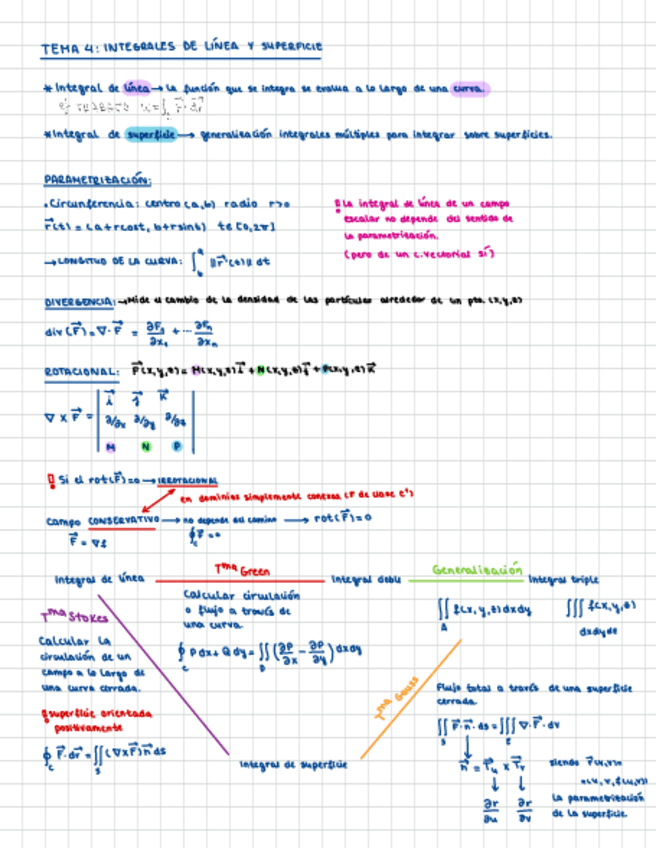 TEMA 4: INTEGRALES DE LÍNEA Y SUPERFICIE
* Integral de línea → La función que se integra se evalua a lo largo de una curva.
* Integral de superficie → generalización integrales múltiples para integrar sobre superficies.
PARAMETRIZACIÓN:
• Circunferencia: centro (a,b) radio r>0
r⃗(t) = (a+rcost, b+rsint) t∈[0,2π]
→ LONGITUD DE LA CURVA: ∫ₐᵇ ||r⃗'(t)|| dt
! La integral de línea de un campo
escalar no depende del sentido de
la parametrización.
(pero de un c. vectorial sí)
DIVERGENCIA: → Mide el cambio de la densidad de las partículas alrededor de un pto. (x,y,z)
div(F⃗) = ∇·F⃗ = ∂F₁/∂x₁ + ... ∂Fₙ/∂xₙ
ROTACIONAL: F⃗(x,y,z) = M(x,y,z)i⃗ + N(x,y,z)j⃗ + P(x,y,z)k⃗
i⃗ j⃗ k⃗
∇ x F⃗ = ∂/∂x ∂/∂y ∂/∂z
M N P
! Si el rot(F⃗)=0 → IRROTACIONAL
en dominios simplemente conexos (F de clase C¹)
Campo CONSERVATIVO → no depende del camino → rot(F⃗)=0
F⃗ = ∇f
∮ F⃗ = 0
Integral de línea
Tᵐᵃ Green
Integral doble
Generalización
Integral triple
Calcular circulación
o flujo a través de
una curva.
∮ Pdx + Qdy = ∬ (∂P/∂x − ∂P/∂y) dxdy
∬ f(x,y,z)dxdy
A
∭ f(x,y,z)
dxdydz
Tᵐᵃ Stokes
Calcular la
circulación de un
campo a lo largo de
una curva cerrada.
! superficie orientada
positivamente
∮ F⃗·dr⃗ = ∬ (∇xF⃗)n⃗ds
Tᵐᵃ Gauss
Integral de superficie
Flujo total a través de una superficie
cerrada.
∬ F⃗·n⃗·ds = ∭ ∇·F⃗·dv
n⃗ = T⃗u x T⃗v siendo r⃗(u,v)=
=(u,v,f(u,v))
∂r/∂u ∂r/∂v
la parametrización
de la superficie.